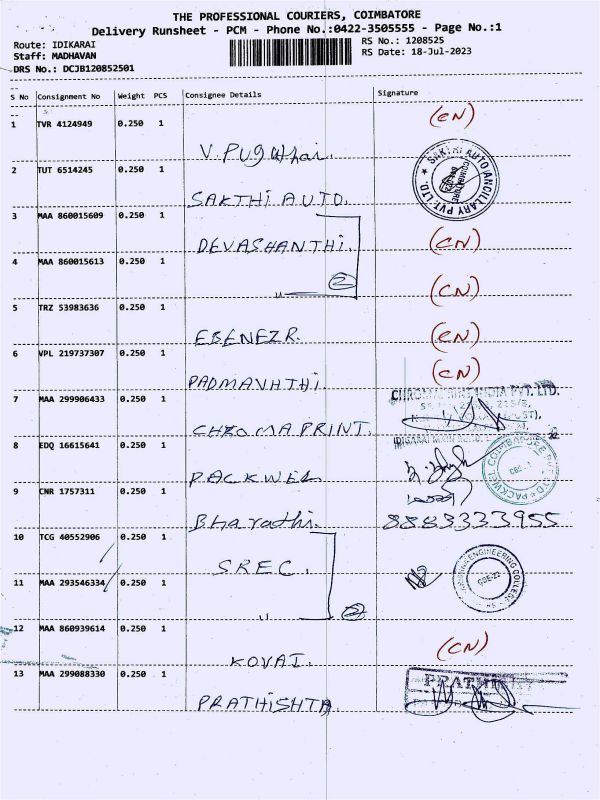 THE PROFESSIONAL COURIERS, COIMBATORE
Delivery Runsheet - PCM - Phone No.:0422-3505555 - Page No.:1
Route: IDIKARAI
Staff: MADHAVAN
DRS No.: DCJB120852501
RS No.: 1208525
RS Date: 18-Jul-2023
S No Consignment No Weight PCS Consignee Details Signature
1 TVR 4124949 0.250 1 (CN)
V. Pugalhai.
2 TUT 6514245 0.250 1 SAKTHI AUTO ANCILLARY PVT. LTD. COIMBATORE
SAKTHI AUTO.
3 MAA 860015609 0.250 1
DEVASHANTHI. (CN)
4 MAA 860015613 0.250 1
" 2 (CN)
5 TRZ 53983636 0.250 1
EBENEZR. (CN)
6 VPL 219737307 0.250 1 (CN)
PADMAVHTHI.
7 MAA 299906433 0.250 1 CHROMA PRINT INDIA PVT. LTD.
CHROMA PRINT.
8 EDQ 16615641 0.250 1
PACKWEL
9 CNR 1757311 0.250 1
Bharathi. 8883333955
10 TCG 40552906 0.250 1
SREC.
11 MAA 293546334 0.250 1 ENGINEERING COLLEGE CBE-22
" 2
12 MAA 860939614 0.250 1 (CN)
KOVAI.
13 MAA 299088330 0.250 1
PRATHISHTA.